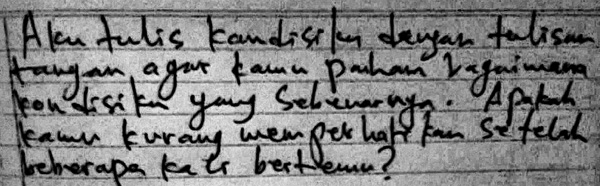 Aku tulis kondisiku dengan tulisan
tangan agar kamu paham bagaimana
kondisiku yang sebenarnya. Apakah
kamu kurang memperhatikan setelah
beberapa kali bertemu?